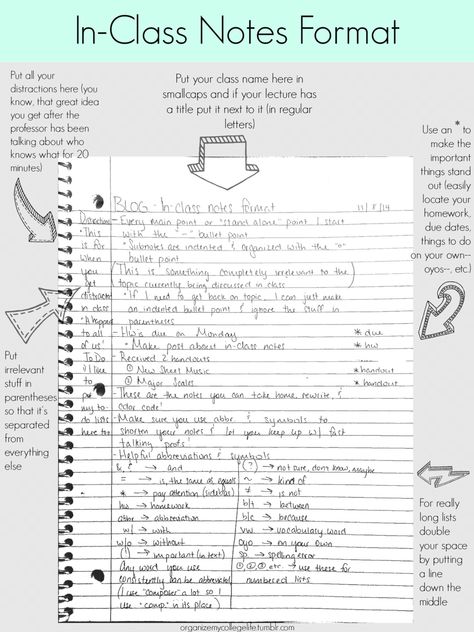 In-Class Notes Format
Put all your
distractions here (you
know, that great idea
you get after the
professor has been
talking about who
knows what for 20
minutes)
Put your class name here in
smallcaps and if your lecture has
a title put it next to it (in regular
letters)
Use an * to
make the
important
things stand
out (easily
locate your
homework,
due dates,
things to do
on your own--
oyos--, etc.)
Put
irrelevant
stuff in
parentheses
so that it's
separated
from
everything
else
For really
long lists
double
your space
by putting
a line
down the
middle
BLOG - In-class notes format 11/8/14
Distractions
"This
is for
when
you
get
distracted
in class
"A happens
to all
of us!
To Do
"I like
to
put
my to-
do lists
here too
- Every main point or "stand alone" point I start
with the "-" bullet point
° Subnotes are indented & organized with the "o"
bullet point
(This is something completely irrelevant to the
topic currently being discussed in class)
° If I need to get back on topic, I can just make
an indented bullet point & ignore the stuff in
parentheses
- HW's due on Monday * due
° Make post about in-class notes * hw
- Received 2 handouts
① New Sheet Music * handout
② Major Scales * handout
- These are the notes you can take home, rewrite, &
color code!
- Make sure you use abbr. & symbols to
shorten your notes & let you keep up w/ fast
talking profs!
- Helpful abbreviations & symbols
&, → and
= → is, the same as, equals
* → pay attention (sidebar)
hw → homework
abbr → abbreviation
w/ → with
w/o → without
(!) → important (in text)
Any word you use
consistently can be abbreviated
(I use "composer" a lot so I
use "comp." in its place)
(?) → not sure, don't know, maybe
~ → kind of
≠ → is not
b/t → between
b/c → because
vw → vocabulary word
oyo → on your own
sp → spelling error
①, ②, ③, etc. → use these for
numbered lists
organizemycollegelife.tumblr.com